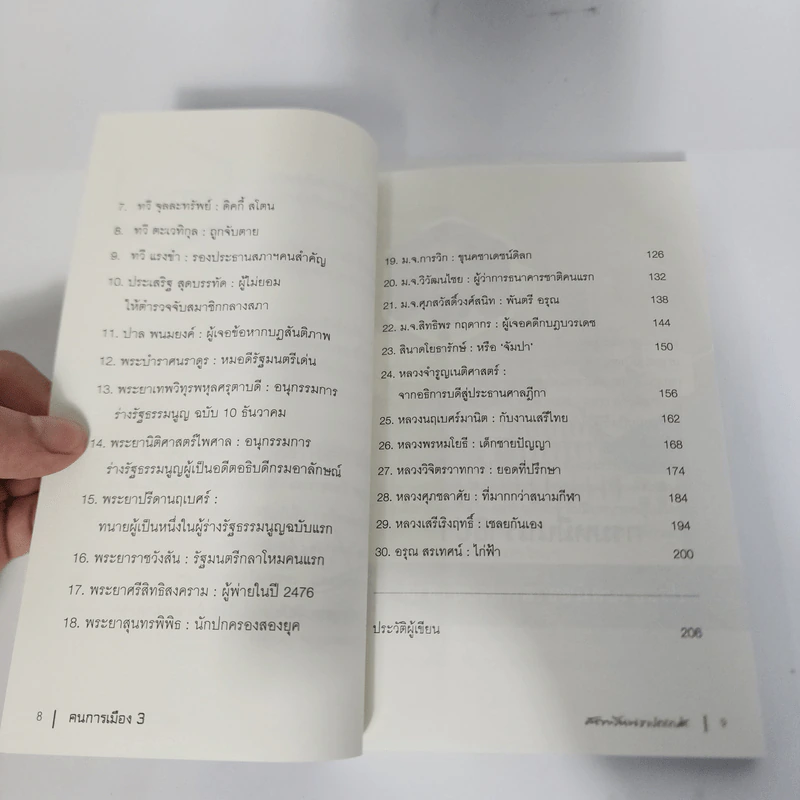 7. ทวี จุลละทรัพย์ : ดิคกี้ สโตน
8. ทวี ตะเวทิกุล : ถูกจับตาย
9. ทวี แรงขำ : รองประธานสภาฯคนสำคัญ
10. ประเสริฐ สุดบรรทัด : ผู้ไม่ยอม
ให้ตำรวจจับสมาชิกกลางสภา
11. ปาล พนมยงค์ : ผู้เจอข้อหากบฏสันติภาพ
12. พระบำราศนราดูร : หมอดีรัฐมนตรีเด่น
13. พระยาเทพวิทุรพหุลศรุตาบดี : อนุกรรมการ
ร่างรัฐธรรมนูญ ฉบับ 10 ธันวาคม
14. พระยานิติศาสตร์ไพศาล : อนุกรรมการ
ร่างรัฐธรรมนูญผู้เป็นอดีตอธิบดีกรมอาลักษณ์
15. พระยาปรีดานฤเบศร์ :
ทนายผู้เป็นหนึ่งในผู้ร่างรัฐธรรมนูญฉบับแรก
16. พระยาราชวังสัน : รัฐมนตรีกลาโหมคนแรก
17. พระยาศรีสิทธิสงคราม : ผู้พ่ายในปี 2476
18. พระยาสุนทรพิพิธ : นักปกครองสองยุค
8 | คนการเมือง 3
19. ม.จ.การวิก : ขุนคชาเดชน์ดิลก 126
20. ม.จ.วิวัฒนไชย : ผู้ว่าการธนาคารชาติคนแรก 132
21. ม.จ.ศุภสวัสดิ์วงศ์สนิท : พันตรี อรุณ 138
22. ม.จ.สิทธิพร กฤดากร : ผู้เจอคดีกบฏบวรเดช 144
23. สินาดโยธารักษ์ : หรือ 'จัมปา' 150
24. หลวงจำรูญเนติศาสตร์ :
จากอธิการบดีสู่ประธานศาลฎีกา 156
25. หลวงนฤเบศร์มานิต : กับงานเสรีไทย 162
26. หลวงพรหมโยธี : เด็กชายปัญญา 168
27. หลวงวิจิตรวาทการ : ยอดที่ปรึกษา 174
28. หลวงศุภชลาศัย : ที่มากกว่าสนามกีฬา 184
29. หลวงเสรีเริงฤทธิ์ : เชลยกันเอง 194
30. อรุณ สรเทศน์ : ไก่ฟ้า 200
ประวัติผู้เขียน 206
| 9